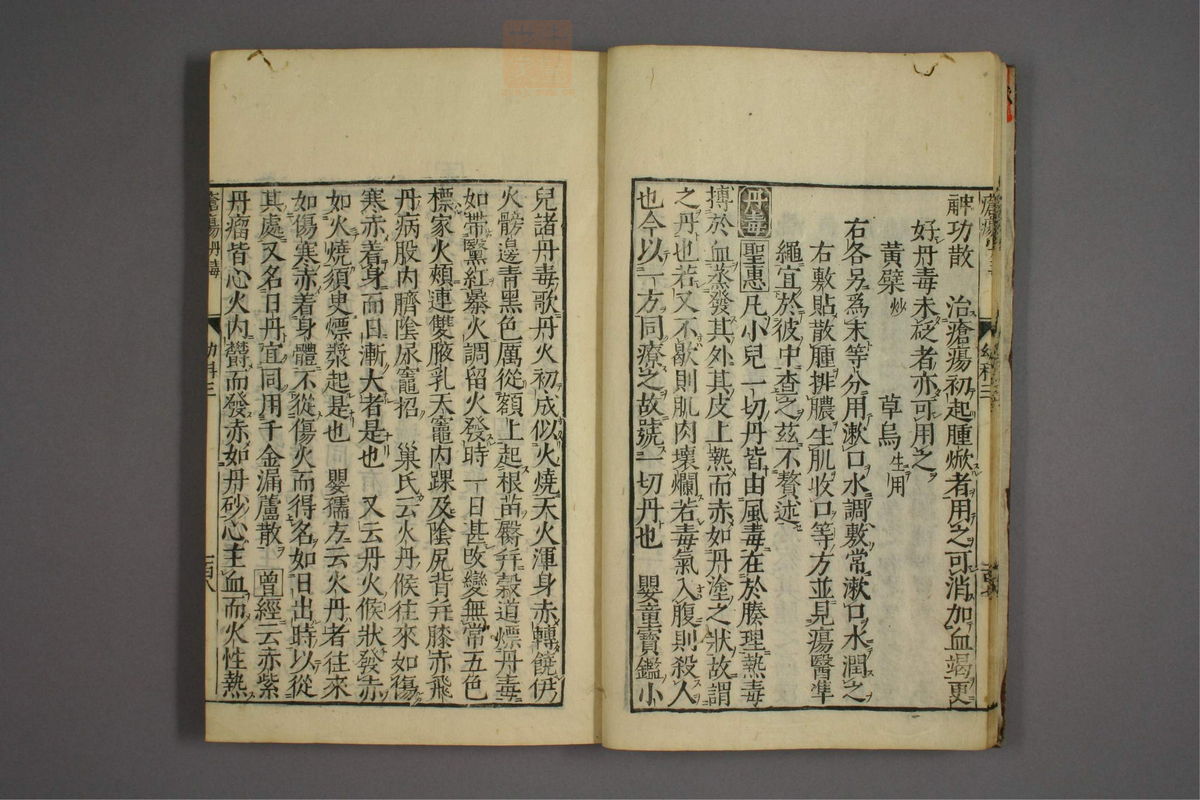 神功散 治瘡瘍初起腫焮者用之可消加血竭更
好丹毒未砭者亦可用之
黄檗炒 草烏生用
右各另爲末等分用漱口水調敷常漱口水潤之
右敷貼散腫排膿生肌收口等方並見瘍醫準
繩宜於彼中查之茲不贅述
丹毒 聖惠凡小兒一切丹皆由風毒在於腠理熱毒
搏於血蒸發其外其皮上熱而赤如丹塗之狀故謂
之丹也若又不歇則肌肉壞爛若毒氣入腹則殺人
也今以一方同療之故號一切丹也 嬰童寶鑑小
兒諸丹毒歌丹火初成似火燒天火渾身赤轉饒伊
火髈邊青黑色厲從額上起根苗臀并穀道熛丹毒
如帶醫紅暴火調留火發時一日甚改變無常五色
標家火頰連雙腋乳天竈内踝及陰尻背并膝赤飛
丹病股内臍陰尿竈招 巢氏云火丹候往來如傷
寒赤着身而日漸大者是也 又云丹火候狀發赤
如火燒須臾熛漿起是也 嬰孺方云火丹者往來
如傷寒赤着身體不從傷火而得名如日出時以從
其處又名日丹宜同用千金漏蘆散 曾經云赤紫
丹瘤皆心火内欝而發赤如丹砂心主血而火性熱
瘡瘍丹毒 幼科三 百八